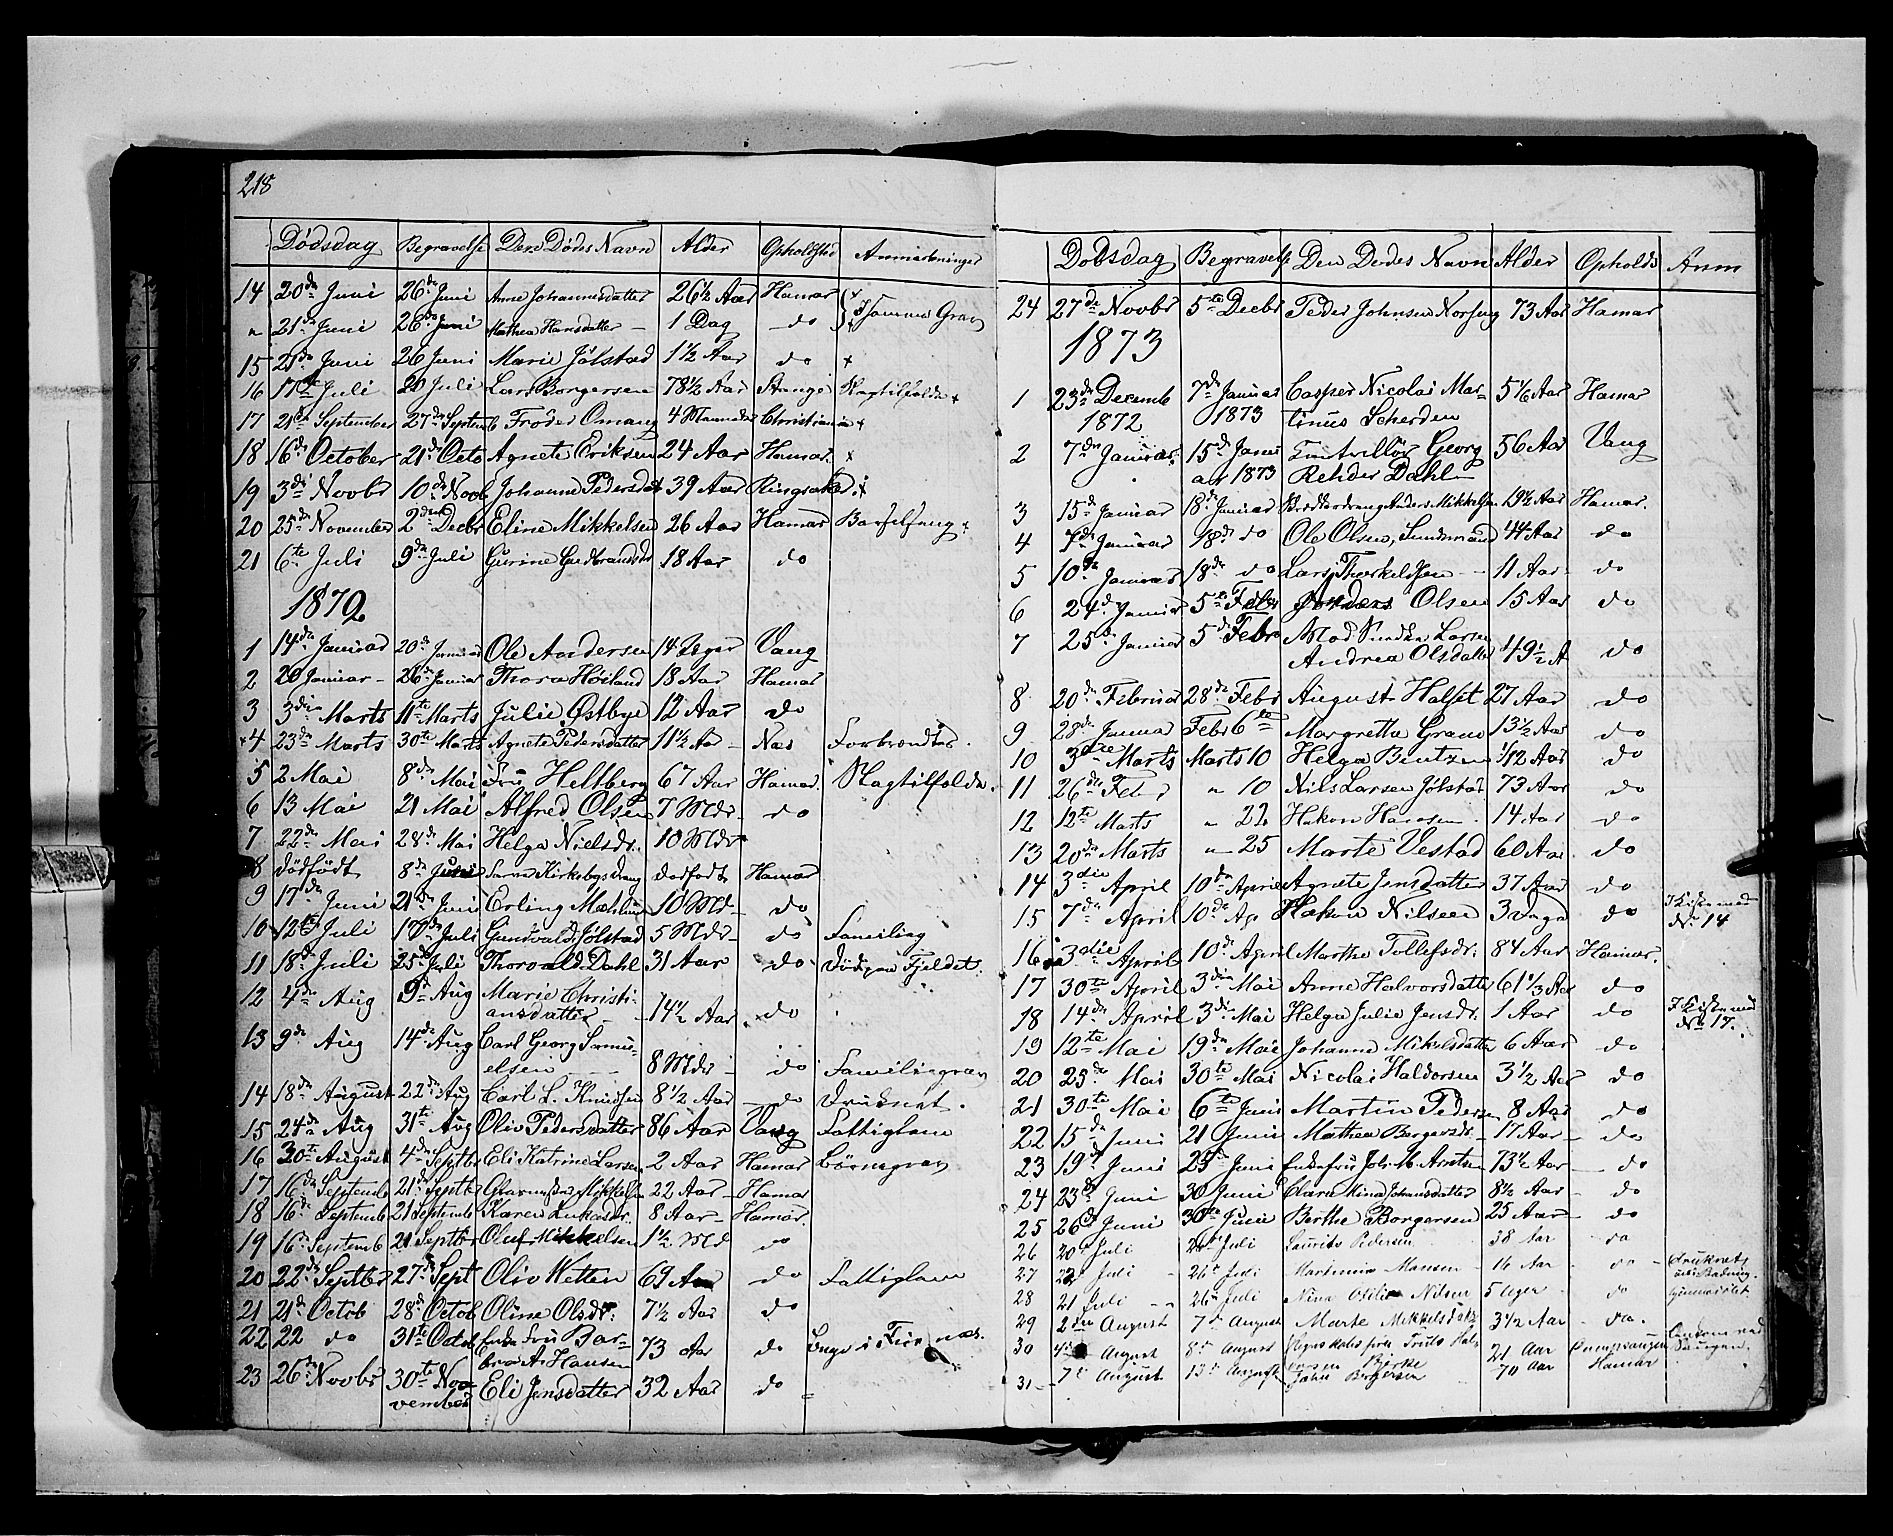 218
Dödsdag Begravelse Den Dödes Navn Alder Opholdsted Anmærkninger
14 20de Juni 26de Juni Anne Johannesdatter 26½ Aar Hamar
" 21de Juni 26de Juni Mathea Hansdatter – 1 Dag do I samme Grav
15 21de Juni 26 Juni Marie Jölstad 1½ Aar do +
16 17de Juli 20 Juli Lars Borgersen 78½ Aar Stange Slagtilfælde +
17 21de September 27de Septemb Fröder Omang 4 Maaneder Christiania +
18 16de October 21de Octo Agnete Eriksen 24 Aar Hamar. +
19 3de Novbr 10de Novb Johanne Pedersdat 39 Aar Ringsaker +
20 25de November 2den Decbr Eline Mikkelsen 26 Aar Hamar Barselseng +
21 6te Juli 9de Juli Gurine Gudbrandsdr 18 Aar do
1872
1 14de Januar 20de Januar Ole Andersen 14 Uger Vang
2 20 Januar – 26de Januar Thora Höiland 18 Aar Hamar
3 3die Marts 11te Marts Julie Østbye 12 Aar do
+4 23de Marts 30te Marts Agnete Pedersdatter 11½ Aar – Næs Forbrændte.
5 2 Mai 8de Mai Fru Heltberg 67 Aar Hamar Slagtilfælde.
6 13 Mai 21 Mai Alfred Olsen 7 Mdr – do
7 22de Mai 28de Mai Helga Nielsdr. 10 Mdr
8 Dödfödt 8de Juni Kirkebys Dreng dödfödt Hamar
9 17de Juni 21de Juni Erling Mæhlum 10 Md – do
10 12te Juli 17de Juli Gundvald Jölstad 5 Mdr – do Familieg
11 18de Juli 25de Juli Thorvald Dahl 31 Aar do Död paa Fjeldet.
12 4de Aug 9de Aug Marie Christi-
ansdatter – 14½ Aar do
13 9de Aug 14de Aug Carl Georg Samu-
elsen 8 Mdr – do Familiegrav
14 18de August 22de Aug Carl L. Knudsen 8½ Aar do Druknet.
15 24de Aug 31te Aug Oliv Pedersdatter 86 Aar Vang Fattiglem
16 30te August 4de Septbr Eli Katrine Larsen 2 Aar Hamar Börnegrav
17 16de Septemb 21de Septbr Mikkelsen 22 Aar – Hamar
18 16de Septemb 21 Septemb Karen Lukasdr. 8 Aar – Hamar.
19 16de Septemb 21 Septbr Oluf Mikkelsen 1½ Md do
20 22de Septbr 27de Sept Oliv Wetten 69 Aar do Fattiglem
21 21de Octob 28de Octob Oline Olsdr. 7½ Aar do
22 22 do 31te Octob Enke Fru Bar-
bra A. Hansen 73 Aar do
23 26de Novbr 30te No-
vember Eli Jensdatter 32 Aar do
Dödsdag Begravelse Den Dödes Navn Alder Opholds Anm
24 27de Novbr 5te Decbr Peder Johnsen 73 Aar Hamar
1873
1 23de Decemb 7de Januar Casper Nicolai Mar- 5 1/6 Aar Hamar
1872 1873 tinus Scherden
2 7de Januar. 15de Janu Georg 56 Aar Vang
ar 1873 Rehder Dahl
3 15de Januar 18de Januar Anders Mikkelsen 19½ Aar Hamar.
4 7de Januar 18de do Ole Olsen, Sundmand 44 Aar do
5 10de Januar 18de do Lars Thorkeldsen – 11 Aar do
6 24de Januar 5te Febr Anders Olsen 15 Aar do
7 25de Januar 5de Febr Larsen
Andrea Olsdatter 49½ A do
8 20de Februar 28de Febr August Halset 27 Aar do
9 28de Janua Febr 6te Margretha Gram 13½ Aar do
10 3die Marts Marts 10 Helga Bentzen 1/12 Aar do
11 26de Febr " 10 Nils Larsen Jölstad 73 Aar do
12 12te Marts " 22 Hakon Hansen. 14 Aar do
13 20de Marts " 25 Marte Vestad 60 Aar. do
14 3die April 10de April Agnete Jensdatter 37 Aar do
15 7de April 10de Ap Hakon Nilsen 3 Dage do I Kiste med No 14
16 3die April 10de April Marthe Tollefsdr. 84 Aar Hamar.
17 30te April 3die Mai Anne Halvorsdatter 61 1/3 Aar do
18 14de April 3die Mai Helga Julie Jensdr. 1 Aar do I Kiste med No 17.
19 12te Mai 19de Mai Johanne Mikelsdatter 6 Aar do
20 25de Mai 30te Mai Nicolai Haldorsen 3½ Aar do
21 30te Mai 6te Juni Martin Pedersen 8 Aar do
22 15de Juni 21 Juni Mathea Borgersdr. – 17 Aar – do
23 19de Juni 25de Juni Enkefru Joh. M. Arntsen 73½ Aar – do
24 23de Juni 30 Juni Clara Mina Johansdatter 8½ Aar – do
25 26de Juni 30te Juni Berthe Borgersen 25 Aar – do
26 20de Juli Juli Laurits Pedersen 38 Aar do
27 22 Juli 26de Juli Hansen – 16 Aar do – druknet under Badning.
28 21 Juli – 26de Juli Nina Otilie Nilsen 5 Uger do
29 2den August 7de August Marte Mikkelsdatr 3½ Aar – do.
30 August 8de August 21 Aar
31 – 7de August 13de August Borgersen 70 Aar Hamar